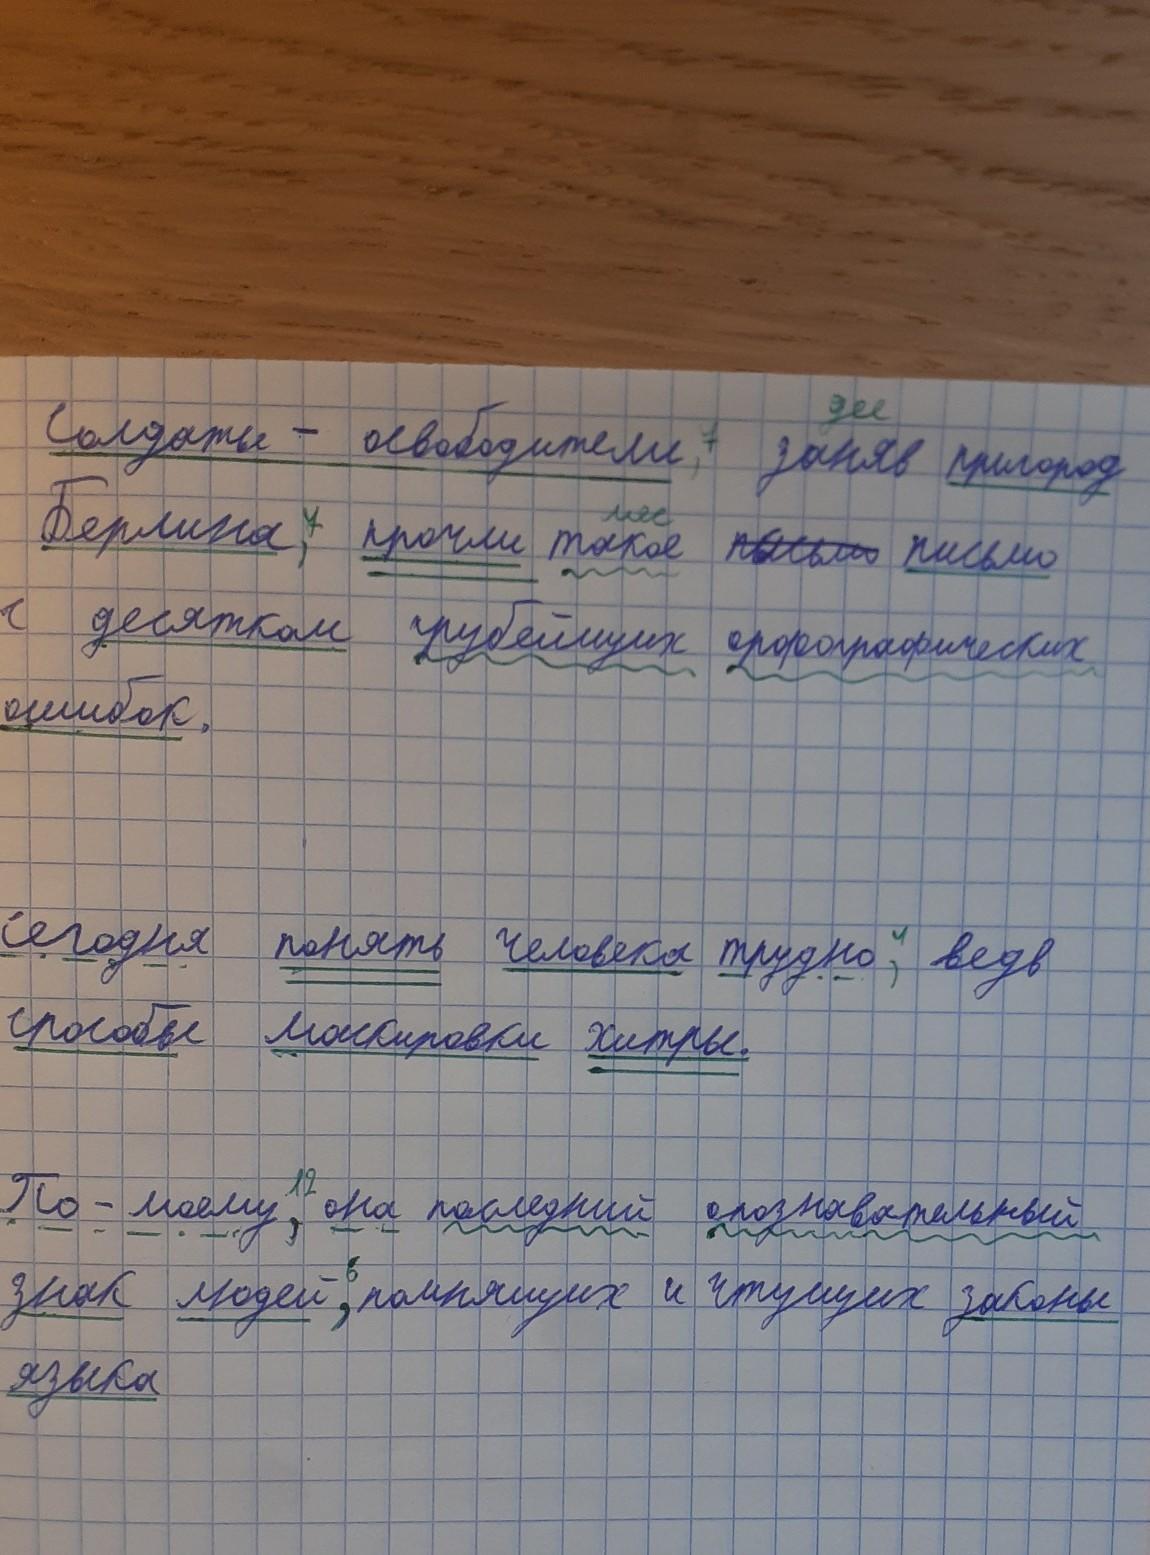 дее
Солдаты - освободители,7 заняв пригород
Берлина,7 прочли такое письмо письмо
мес
с десятком грубейших орфографических
ошибок.
Сегодня понять человека трудно,4 ведь
способы маскировки хитры.
По-моему,12 она последний опознавательный
знак людей,6 помнящих и чтущих законы
языка